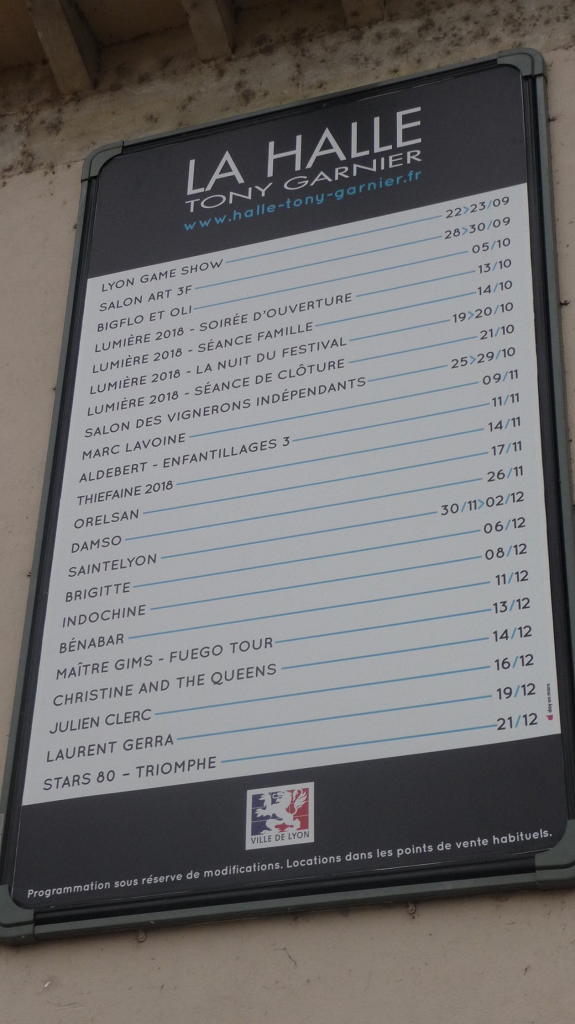 LA HALLE
TONY GARNIER
www.halle-tony-garnier.fr
LYON GAME SHOW 22>23/09
SALON ART 3F 28>30/09
BIGFLO ET OLI 05/10
LUMIÈRE 2018 - SOIRÉE D'OUVERTURE 13/10
LUMIÈRE 2018 - SÉANCE FAMILLE 14/10
LUMIÈRE 2018 - LA NUIT DU FESTIVAL 19>20/10
LUMIÈRE 2018 - SÉANCE DE CLÔTURE 21/10
SALON DES VIGNERONS INDÉPENDANTS 25>29/10
MARC LAVOINE 09/11
ALDEBERT - ENFANTILLAGES 3 11/11
THIEFAINE 2018 14/11
ORELSAN 17/11
DAMSO 26/11
SAINTELYON 30/11>02/12
BRIGITTE 06/12
INDOCHINE 08/12
BÉNABAR 11/12
MAÎTRE GIMS - FUEGO TOUR 13/12
CHRISTINE AND THE QUEENS 14/12
JULIEN CLERC 16/12
LAURENT GERRA 19/12
STARS 80 – TRIOMPHE 21/12
VILLE DE LYON
Programmation sous réserve de modifications. Locations dans les points de vente habituels.